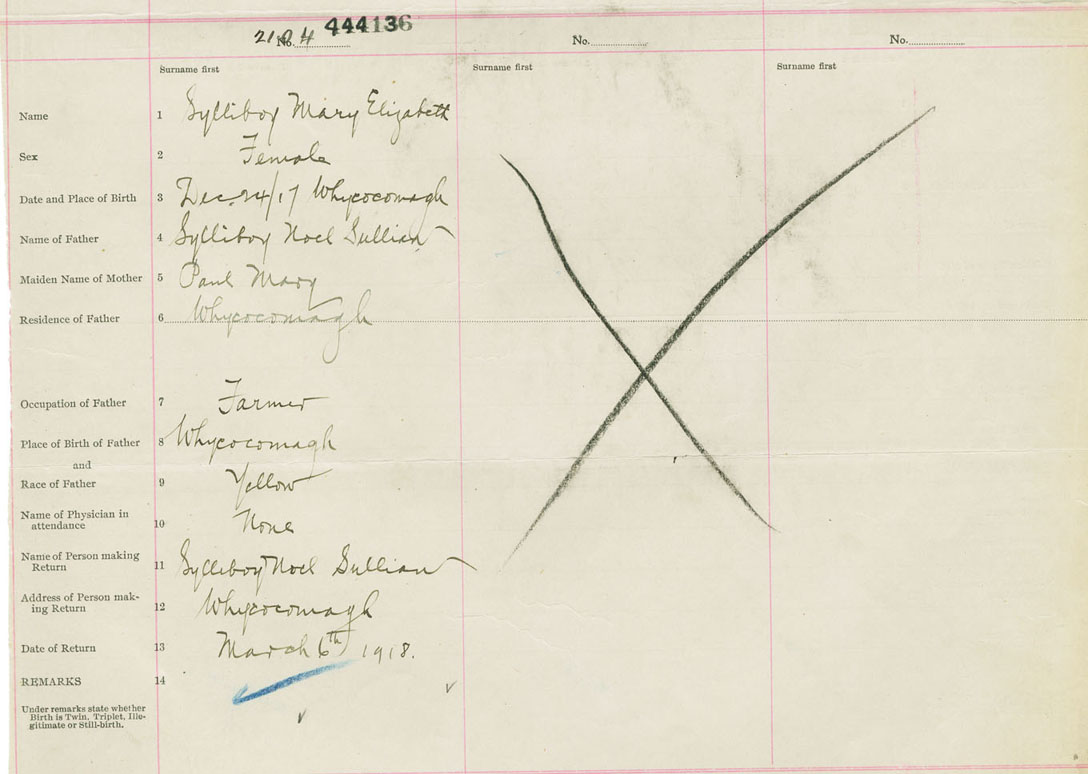 2104 444136
No. No. No.
Surname first Surname first Surname first
Name 1 Sylliboy Mary Elizabeth
Sex 2 Female
Date and Place of Birth 3 Dec. 24/17 Whycocomagh
Name of Father 4 Sylliboy Noel Sullian
Maiden Name of Mother 5 Paul Mary
Residence of Father 6 Whycocomagh
Occupation of Father 7 Farmer
Place of Birth of Father 8 Whycocomagh
and
Race of Father 9 Yellow
Name of Physician in
attendance 10 None
Name of Person making
Return 11 Sylliboy Noel Sullian
Address of Person mak-
ing Return 12 Whycocomagh
Date of Return 13 March 6th 1918.
REMARKS 14
Under remarks state whether
Birth is Twin, Triplet, Ille-
gitimate or Still-birth.